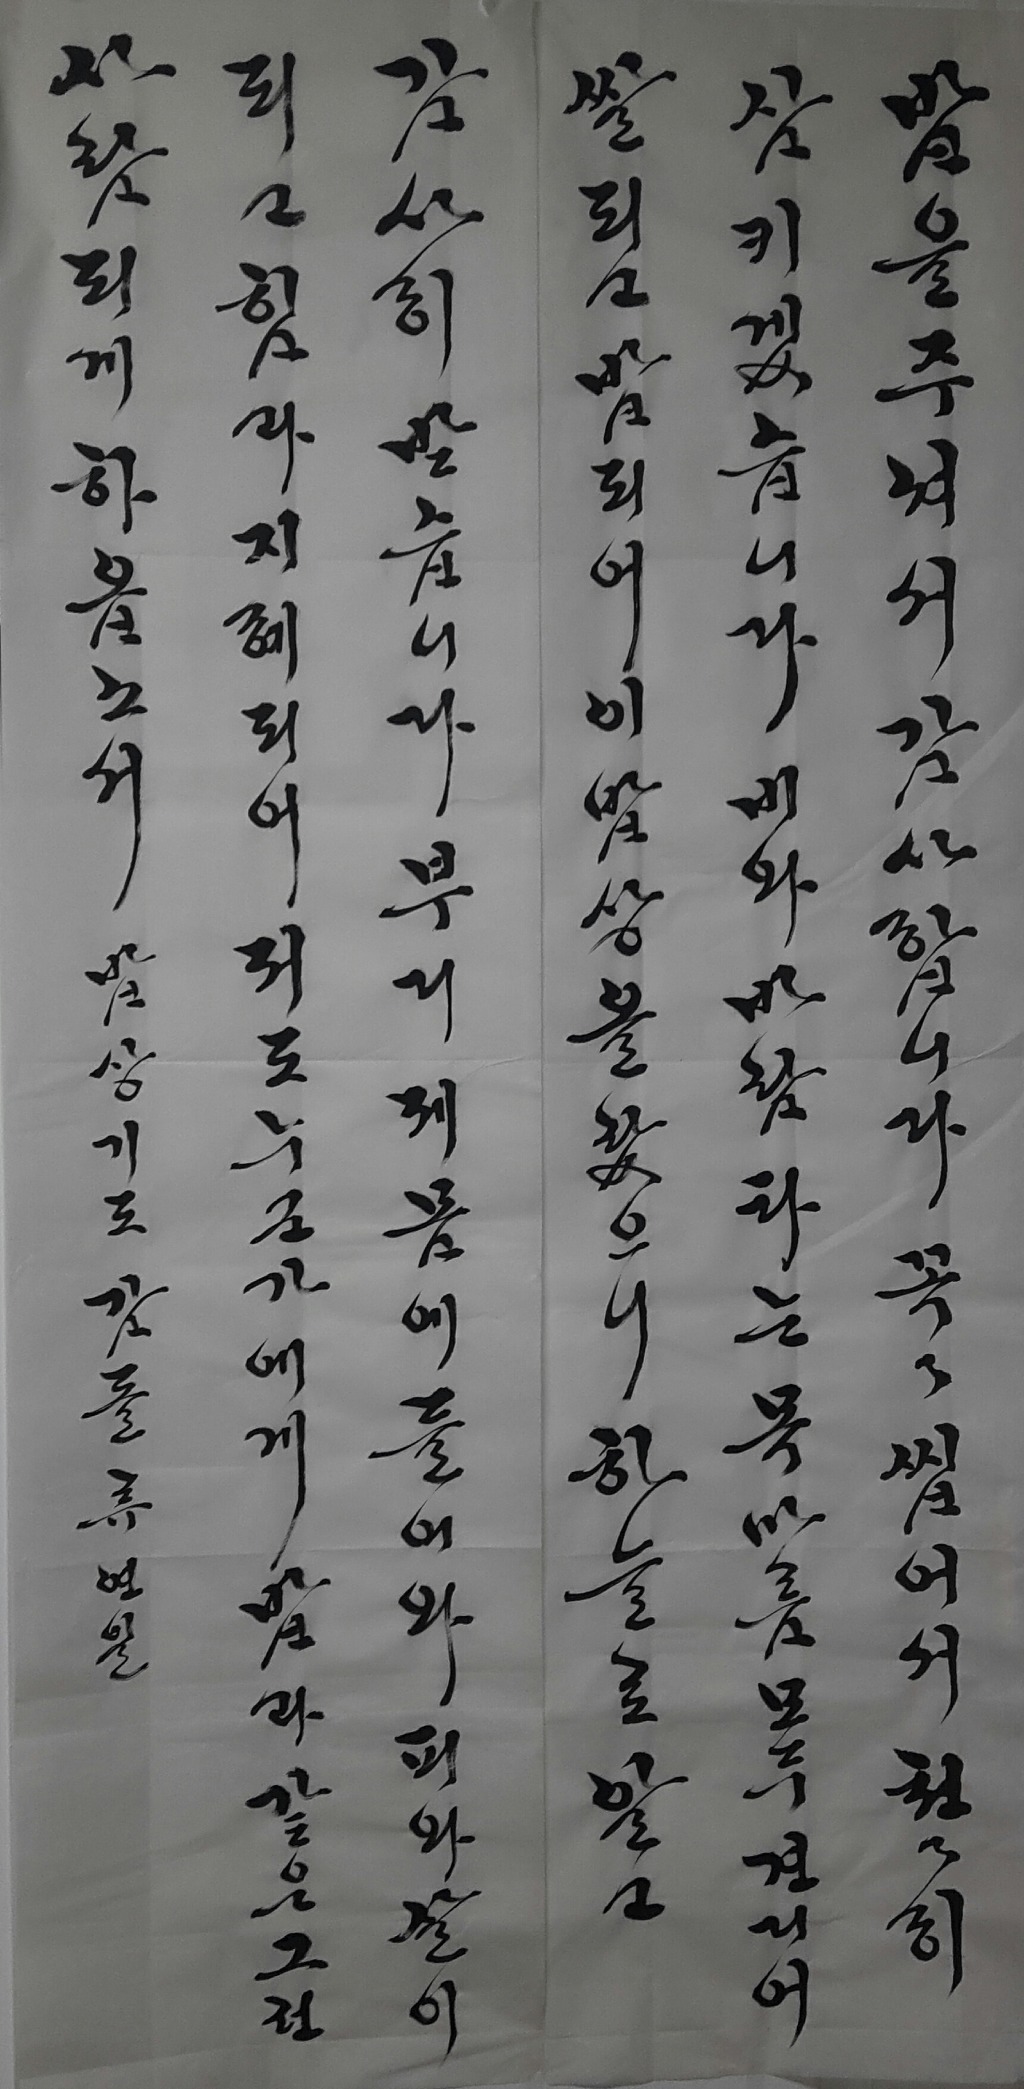 밥을주셔서 감사합니다 꼭〱 씹어서 천〱히
삼키겠습니다 비와 바람 타는 목마름 모두 견디어
쌀되고 밥되어 이 밥상을 찾으니 하늘로 알고
감사히 받습니다 부디 제몸에 들어와 피와 살이
되고 힘과 지혜되어 저도 누군가에게 밥과 같은 그런
사람되게 하옵소서 밥상기도